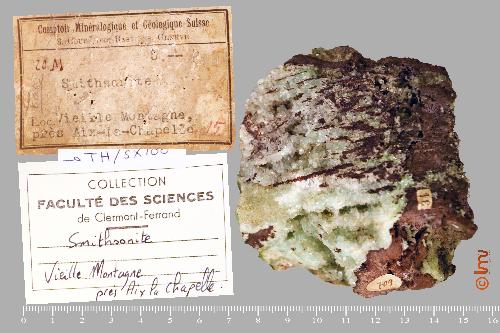 Comptoir Minéralogique et Géologique Suisse
Smithsonite
Loc. Vieille Montagne,
près Aix-la-Chapelle
15
TH/SX100
COLLECTION
FACULTÉ DES SCIENCES
de Clermont-Ferrand
Smithsonite
Vieille Montagne
près Aix la Chapelle
0 1 2 3 4 5 6 7 8 9 10 11 12 13 14 15 16
© lmv